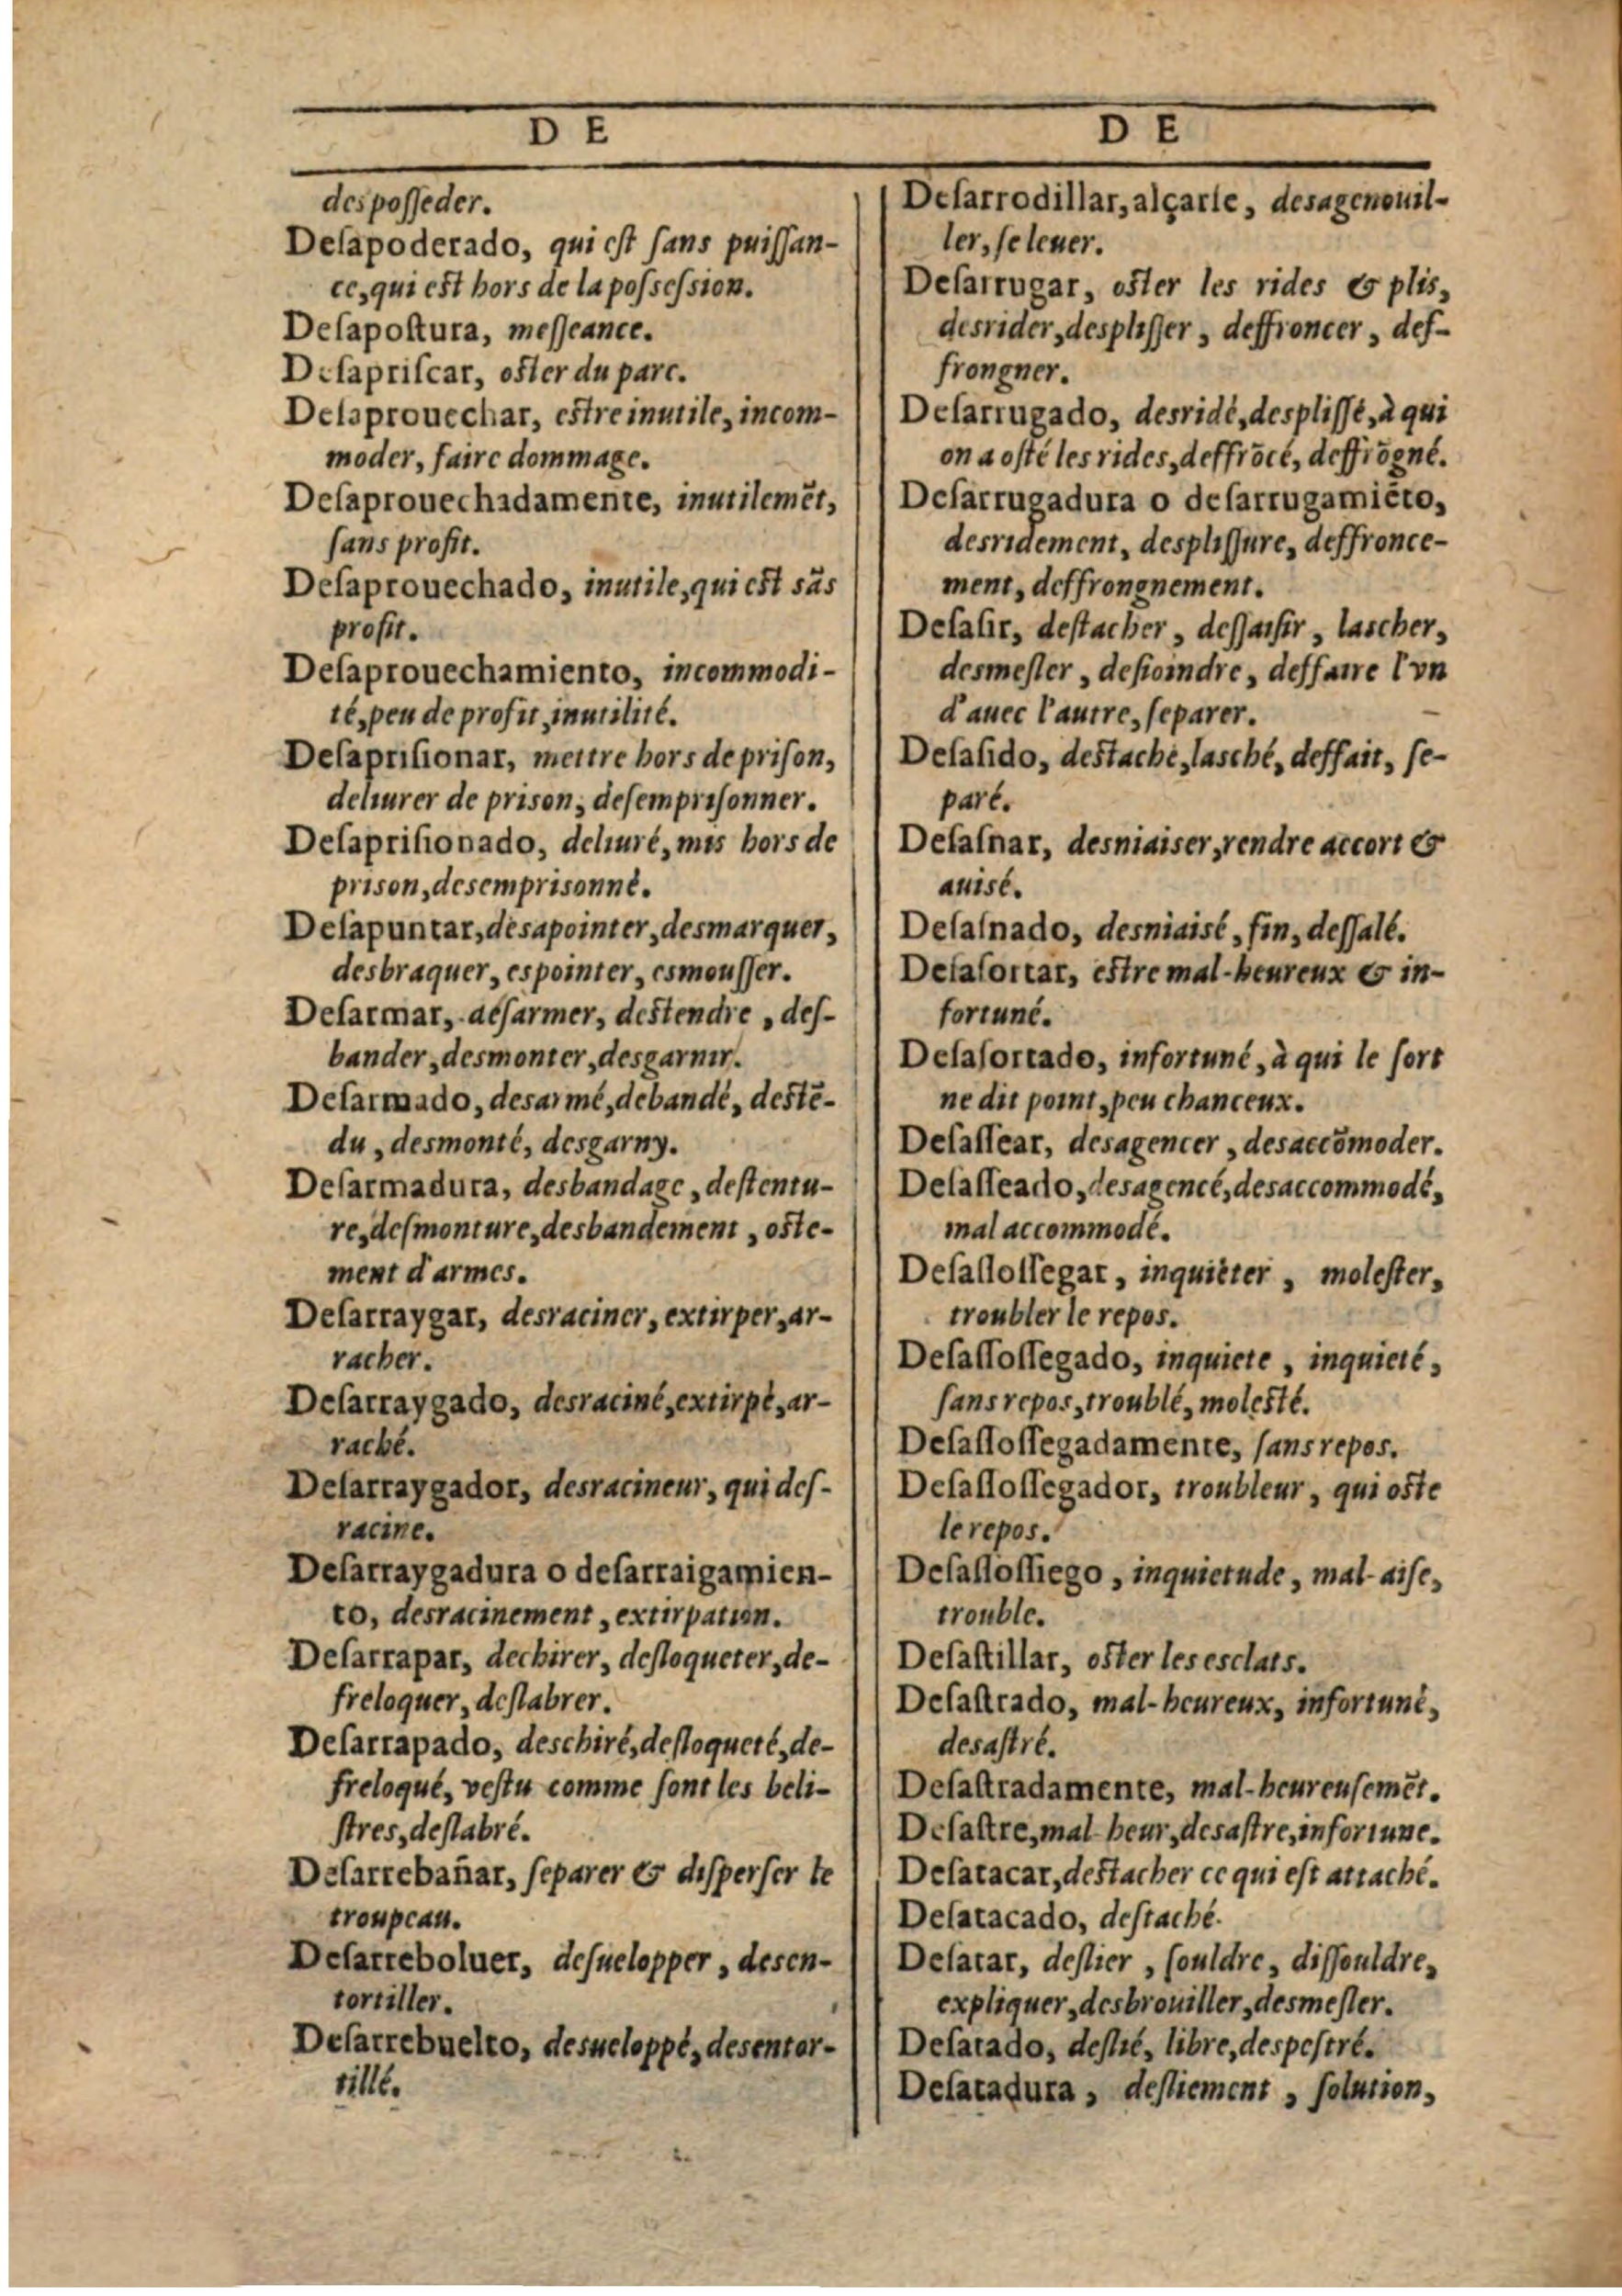 D E
desposſeder.
Deſapoderado, qui eſt ſans puiſſan-
ce, qui eſt hors de la poſſeſſion.
Deſapoſtura, meſſeance.
Deſapriſcar, oſter du parc.
Deſaprouechar, eſtre inutile, incom-
moder, faire dommage.
Deſaprouechadamente, inutilemẽt,
ſans profit.
Deſaprouechado, inutile, qui eſt sãs
profit.
Deſaprouechamiento, incommodi-
té, peu de profit, inutilité.
Deſapriſionar, mettre hors de priſon,
deliurer de prison, deſempriſonner.
Deſapriſionado, deliuré, mis hors de
prison, desemprisonné.
Deſapuntar, desapointer, desmarquer,
desbraquer, espointer, esmouſſer.
Deſarmar, deſarmer, deſtendre, deſ-
bander, desmonter, desgarnir.
Deſarmado, desarmé, debandé, deſtẽ-
du, desmonté, desgarny.
Deſarmadura, desbandage, deſtentu-
re, deſmonture, desbandement, oſte-
ment d'armes.
Deſarraygar, desraciner, extirper, ar-
racher.
Deſarraygado, desraciné, extirpé, ar-
raché.
Deſarraygador, desracineur, qui deſ-
racine.
Deſarraygadura o deſarraigamien-
to, desracinement, extirpation.
Deſarrapar, dechirer, deſloqueter, de-
freloquer, deſlabrer.
Deſarrapado, deschiré, deſloqueté, de-
freloqué, veſtu comme ſont les beli-
ſtres, deſlabré.
Deſarrebañar, ſeparer & diſperſer le
troupeau.
Deſarreboluer, deſuelopper, desen-
tortiller.
Deſarrebuelto, desueloppé, desentor-
tillé.
D E
Deſarrodillar, alçarſe, desagenouil-
ler, ſe leuer.
Deſarrugar, oſter les rides & plis,
desrider, despliſſer, deffroncer, def-
frongner.
Deſarrugado, desridé, despliſſé, à qui
on a oſté les rides, deffrõcé, deffrõgné.
Deſarrugadura o deſarrugamiẽto,
desridement, despliſſure, deffronce-
ment, deffrongnement.
Deſaſir, deſtacher, deſſaiſir, laſcher,
desmeſler, deſioindre, deffaire l'vn
d'auec l'autre, ſeparer.
Deſaſido, deſtaché, laſché, deffait, ſe-
paré.
Deſaſnar, desniaiser, rendre accort &
auisé.
Deſaſnado, desniaisé, fin, deſſalé.
Deſaſortar, eſtre mal-heureux & in-
fortuné.
Deſaſortado, infortuné, à qui le ſort
ne dit point, peu chanceux.
Deſaſſear, desagencer, desaccõmoder.
Deſaſſeado, desagencé, desaccommodé,
mal accommodé.
Deſaſſoſſegar, inquiéter, moleſter,
troubler le repos.
Deſaſſoſſegado, inquiete, inquieté,
ſans repos, troublé, moleſté.
Deſaſſoſſegadamente, ſans repos.
Deſaſſoſſegador, troubleur, qui oſte
le repos.
Deſaſſoſſiego, inquietude, mal-aiſe,
trouble.
Deſaſtillar, oſter les esclats.
Deſaſtrado, mal-heureux, infortuné,
desaſtré.
Deſaſtradamente, mal-heureuſemẽt.
Deſaſtre, mal-heur, desaſtre, infortune.
Deſatacar, deſtacher ce qui eſt attaché.
Deſatacado, deſtaché.
Deſatar, deſlier, ſouldre, diſſouldre,
expliquer, desbrouiller, desmeſler.
Deſatado, deſlié, libre, despeſtré.
Deſatadura, deſliement, ſolution,